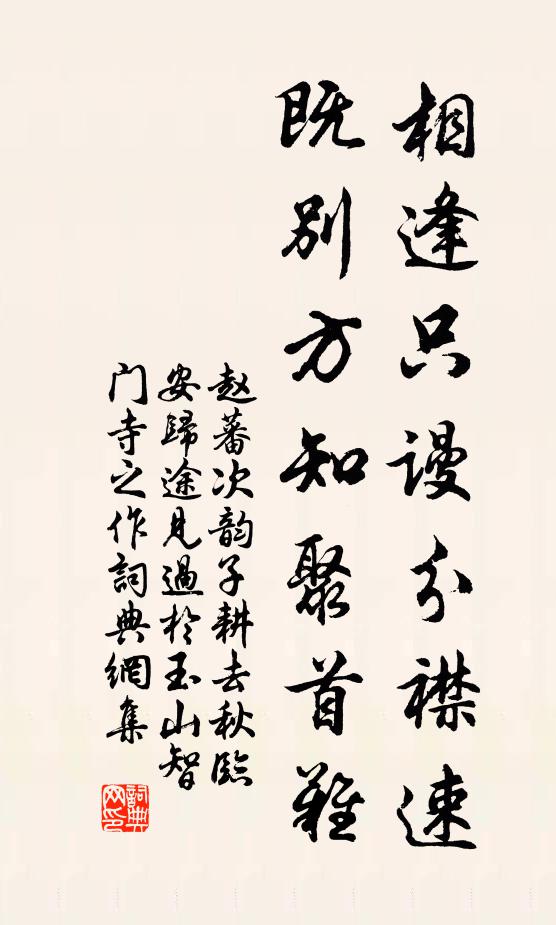 相逢只谩分襟速
既别方知聚首难
赵蕃次韵子耕去秋臨
安歸途見過於玉山智
门寺之作詞典網集
詞典网印